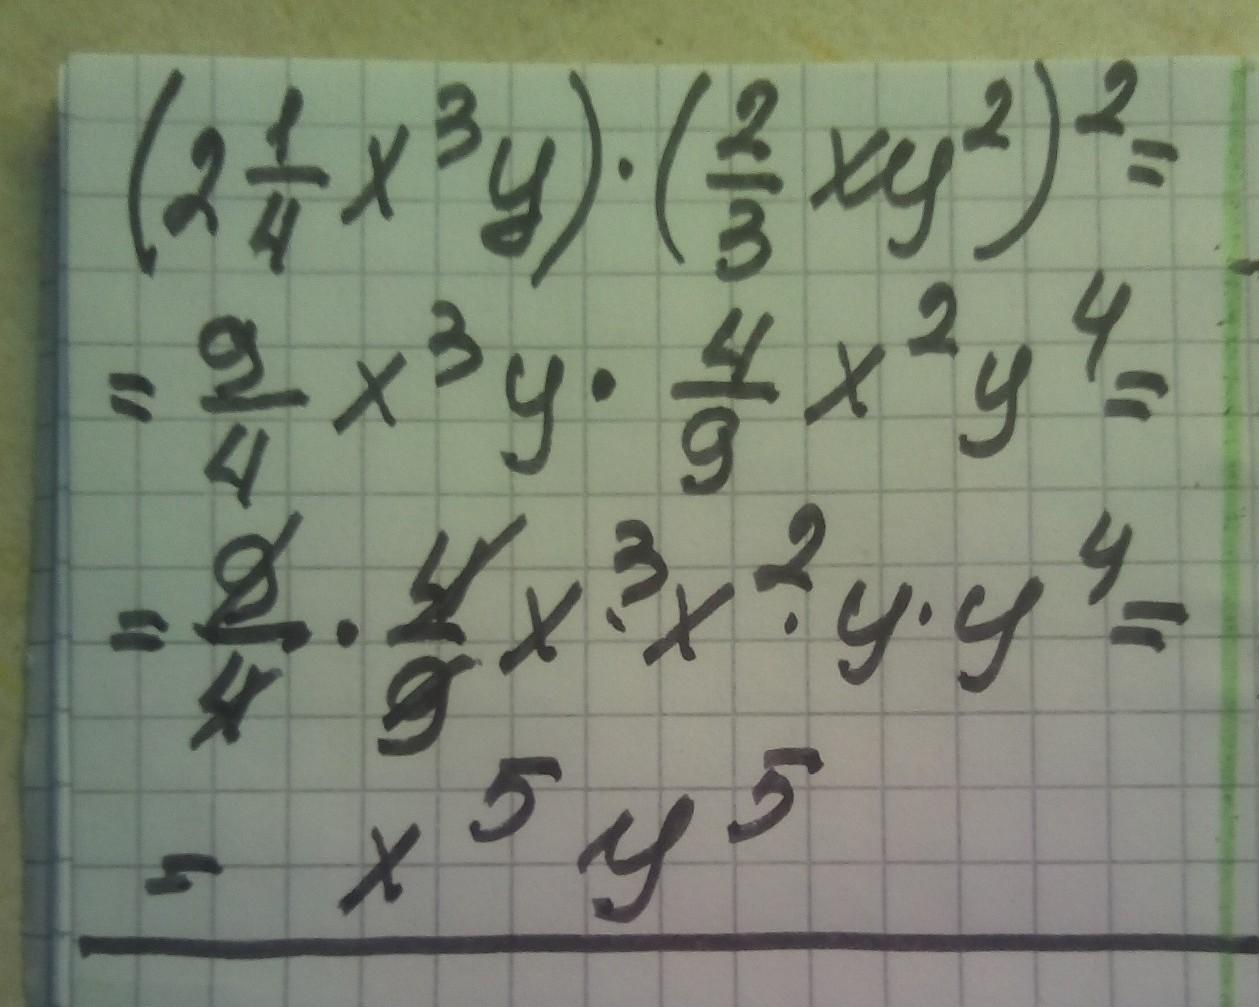 (2 1/4 x³y)·(2/3 xy²)²=
= 9/4 x³y· 4/9 x²y⁴=
= 9/4 · 4/9 x³·x²·y·y⁴=
= x⁵y⁵